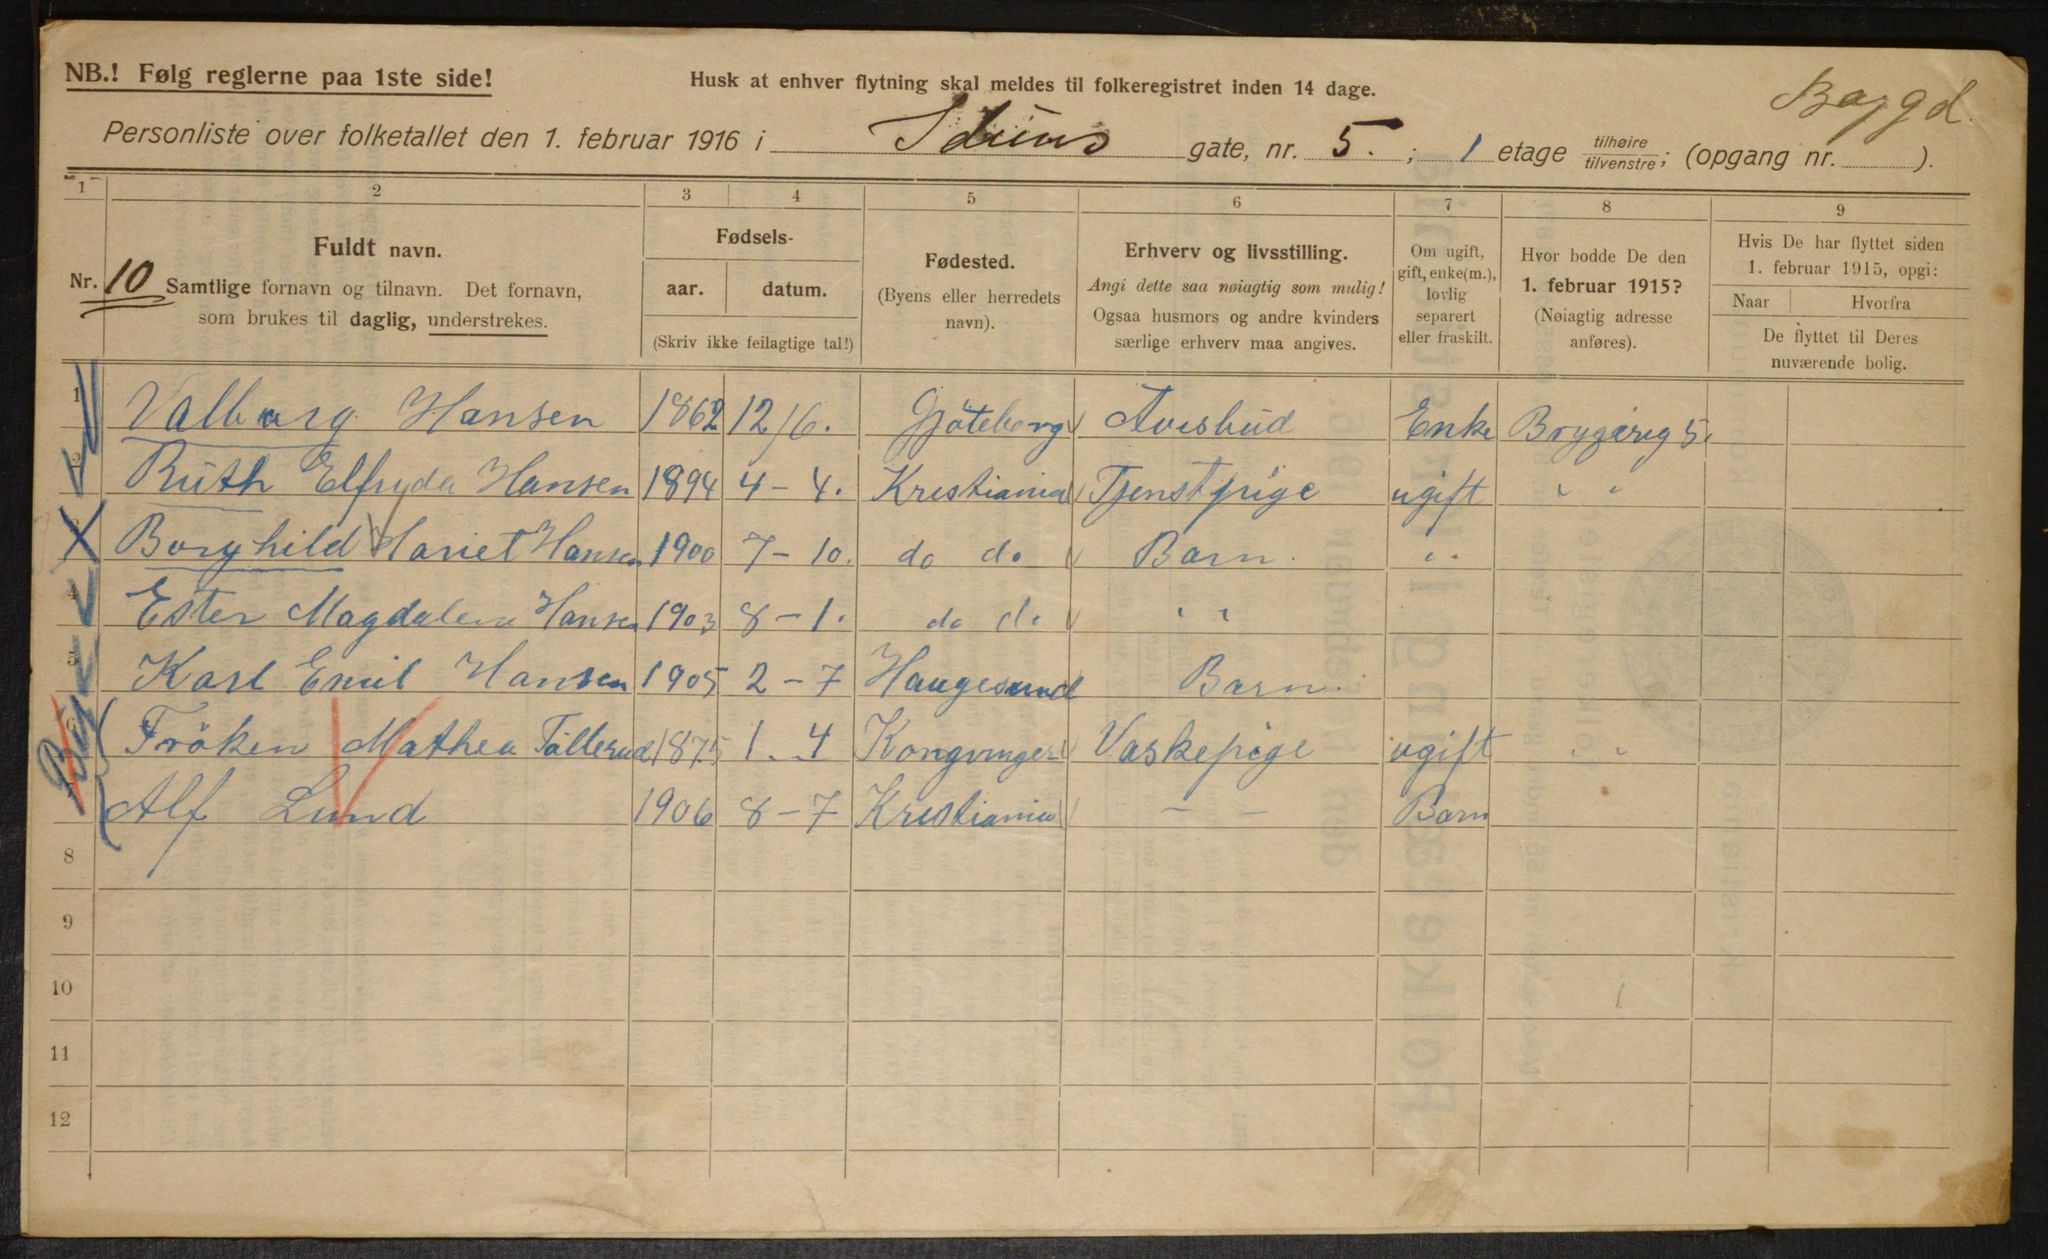 NB.! Følg reglerne paa 1ste side!
Husk at enhver flytning skal meldes til folkeregistret inden 14 dage.
Baggd.
Personliste over folketallet den 1. februar 1916 i Iduns gate, nr. 5. ; 1 etage tilhøire/tilvenstre; (opgang nr. ).
1 2 3 4 5 6 7 8 9
Nr. 10
Fuldt navn.
Samtlige fornavn og tilnavn. Det fornavn,
som brukes til daglig, understrekes.
Fødsels-
aar. datum.
(Skriv ikke feilagtige tal!)
Fødested.
(Byens eller herredets
navn).
Erhverv og livsstilling.
Angi dette saa nøiagtig som mulig!
Ogsaa husmors og andre kvinders
særlige erhverv maa angives.
Om ugift,
gift, enke(m.),
lovlig
separert
eller fraskilt.
Hvor bodde De den
1. februar 1915?
(Nøiagtig adresse
anføres).
Hvis De har flyttet siden
1. februar 1915, opgi:
Naar Hvorfra
De flyttet til Deres
nuværende bolig.
1 Valborg Hansen 1862 12/6. Gjöteborg Avisbud Enke Bryggerig 5.
2 Ruth Elfryda Hansen 1894 4-4. Kristiania Tjenstpige ugift " "
3 Borghild Hariet Hansen 1900 7-10. do do Barn. " "
4 Ester Magdalena Hansen 1903 8-1. do do " "
5 Karl Emil Hansen 1905 2-7 Haugesund Barn.
6 Fröken Mathea Tällerud 1875 1.-4 Kongvinger Vaskepige ugift " "
Alf Lund 1906 8-7 Kristiania — — Barn
8
9
10
11
12